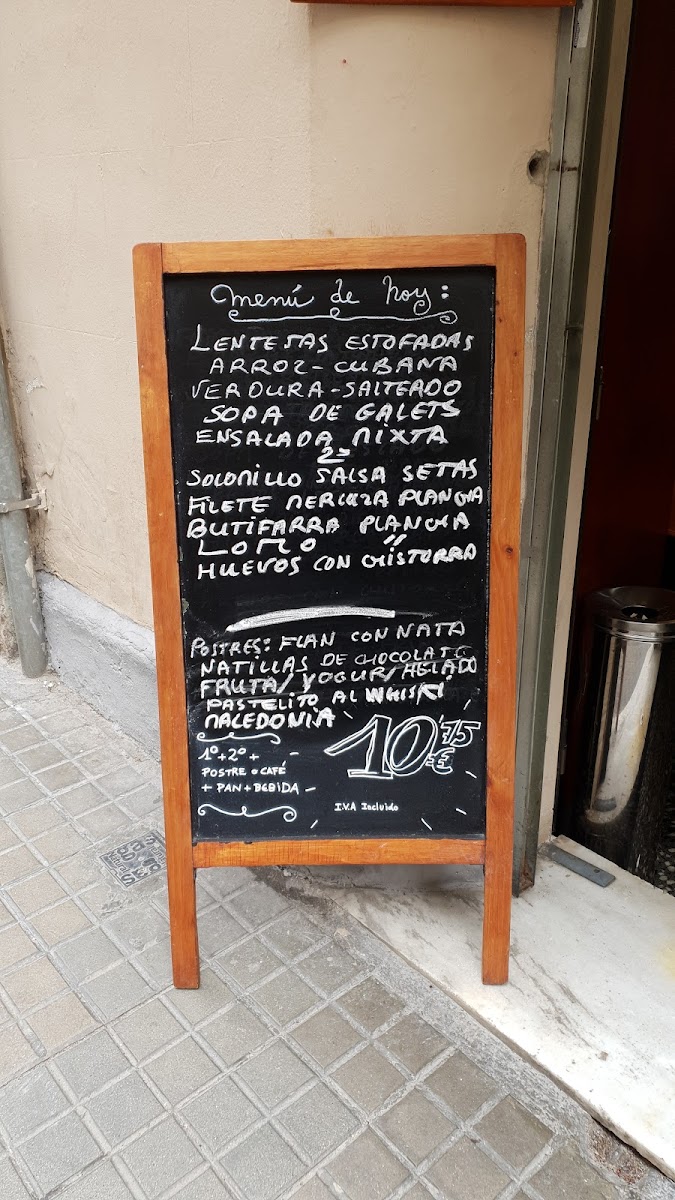 menú de hoy:
LENTEJAS ESTOFADAS
ARROZ-CUBANA
VERDURA-SALTEADO
SOPA DE GALETS
ENSALADA MIXTA
2º
SOLOMILLO SALSA SETAS
FILETE MERLUZA PLANCHA
BUTIFARRA PLANCHA
LOMO "
HUEVOS CON CHISTORRA
POSTRES: FLAN CON NATA
NATILLAS DE CHOCOLATE
FRUTA/YOGUR/HELADO
PASTELITO AL WHISKI
MACEDONIA
1º+2º+
POSTRE O CAFÉ
+ PAN+BEBIDA
10'75€
I.V.A Incluido